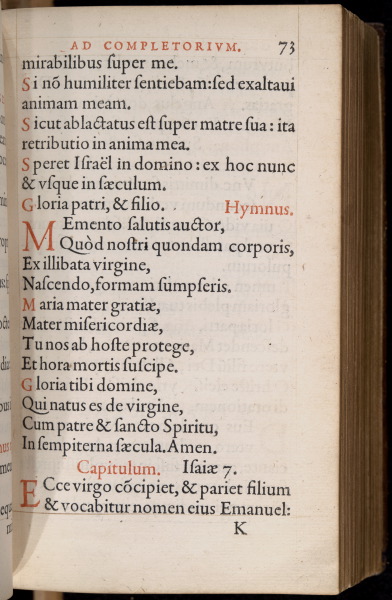 AD COMPLETORIVM. 73
mirabilibus super me.
Si nõ humiliter sentiebam: sed exaltaui
animam meam.
Sicut ablactatus est super matre sua: ita
retributio in anima mea.
Speret Israël in domino: ex hoc nunc
& vsque in sæculum.
Gloria patri, & filio. Hymnus.
MEmento salutis auctor,
Quòd nostri quondam corporis,
Ex illibata virgine,
Nascendo, formam sumpseris.
Maria mater gratiæ,
Mater misericordiæ,
Tu nos ab hoste protege,
Et hora mortis suscipe.
Gloria tibi domine,
Qui natus es de virgine,
Cum patre & sancto Spiritu,
In sempiterna sæcula. Amen.
Capitulum. Isaiæ 7.
ECce virgo cõcipiet, & pariet filium
& vocabitur nomen eius Emanuel:
K